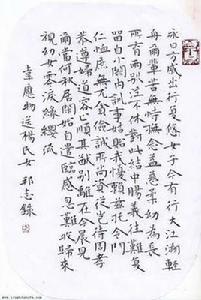 永日方戚出行復悠女子今有行大江溯輕
舟爾輩苦無恃撫念益慈柔幼為長
所育兩別泣不休對此結中腸義往難復
留自小闕內訓事姑貽我憂賴茲托令門
仁恤庶無尤貧儉誠所尚資從豈待周孝
恭遵婦道容止順其猷別離在今晨見
爾當何秋居閑始自遣臨感忽難收歸來
視幼女零淚緣纓流
韋應物送楊氏女